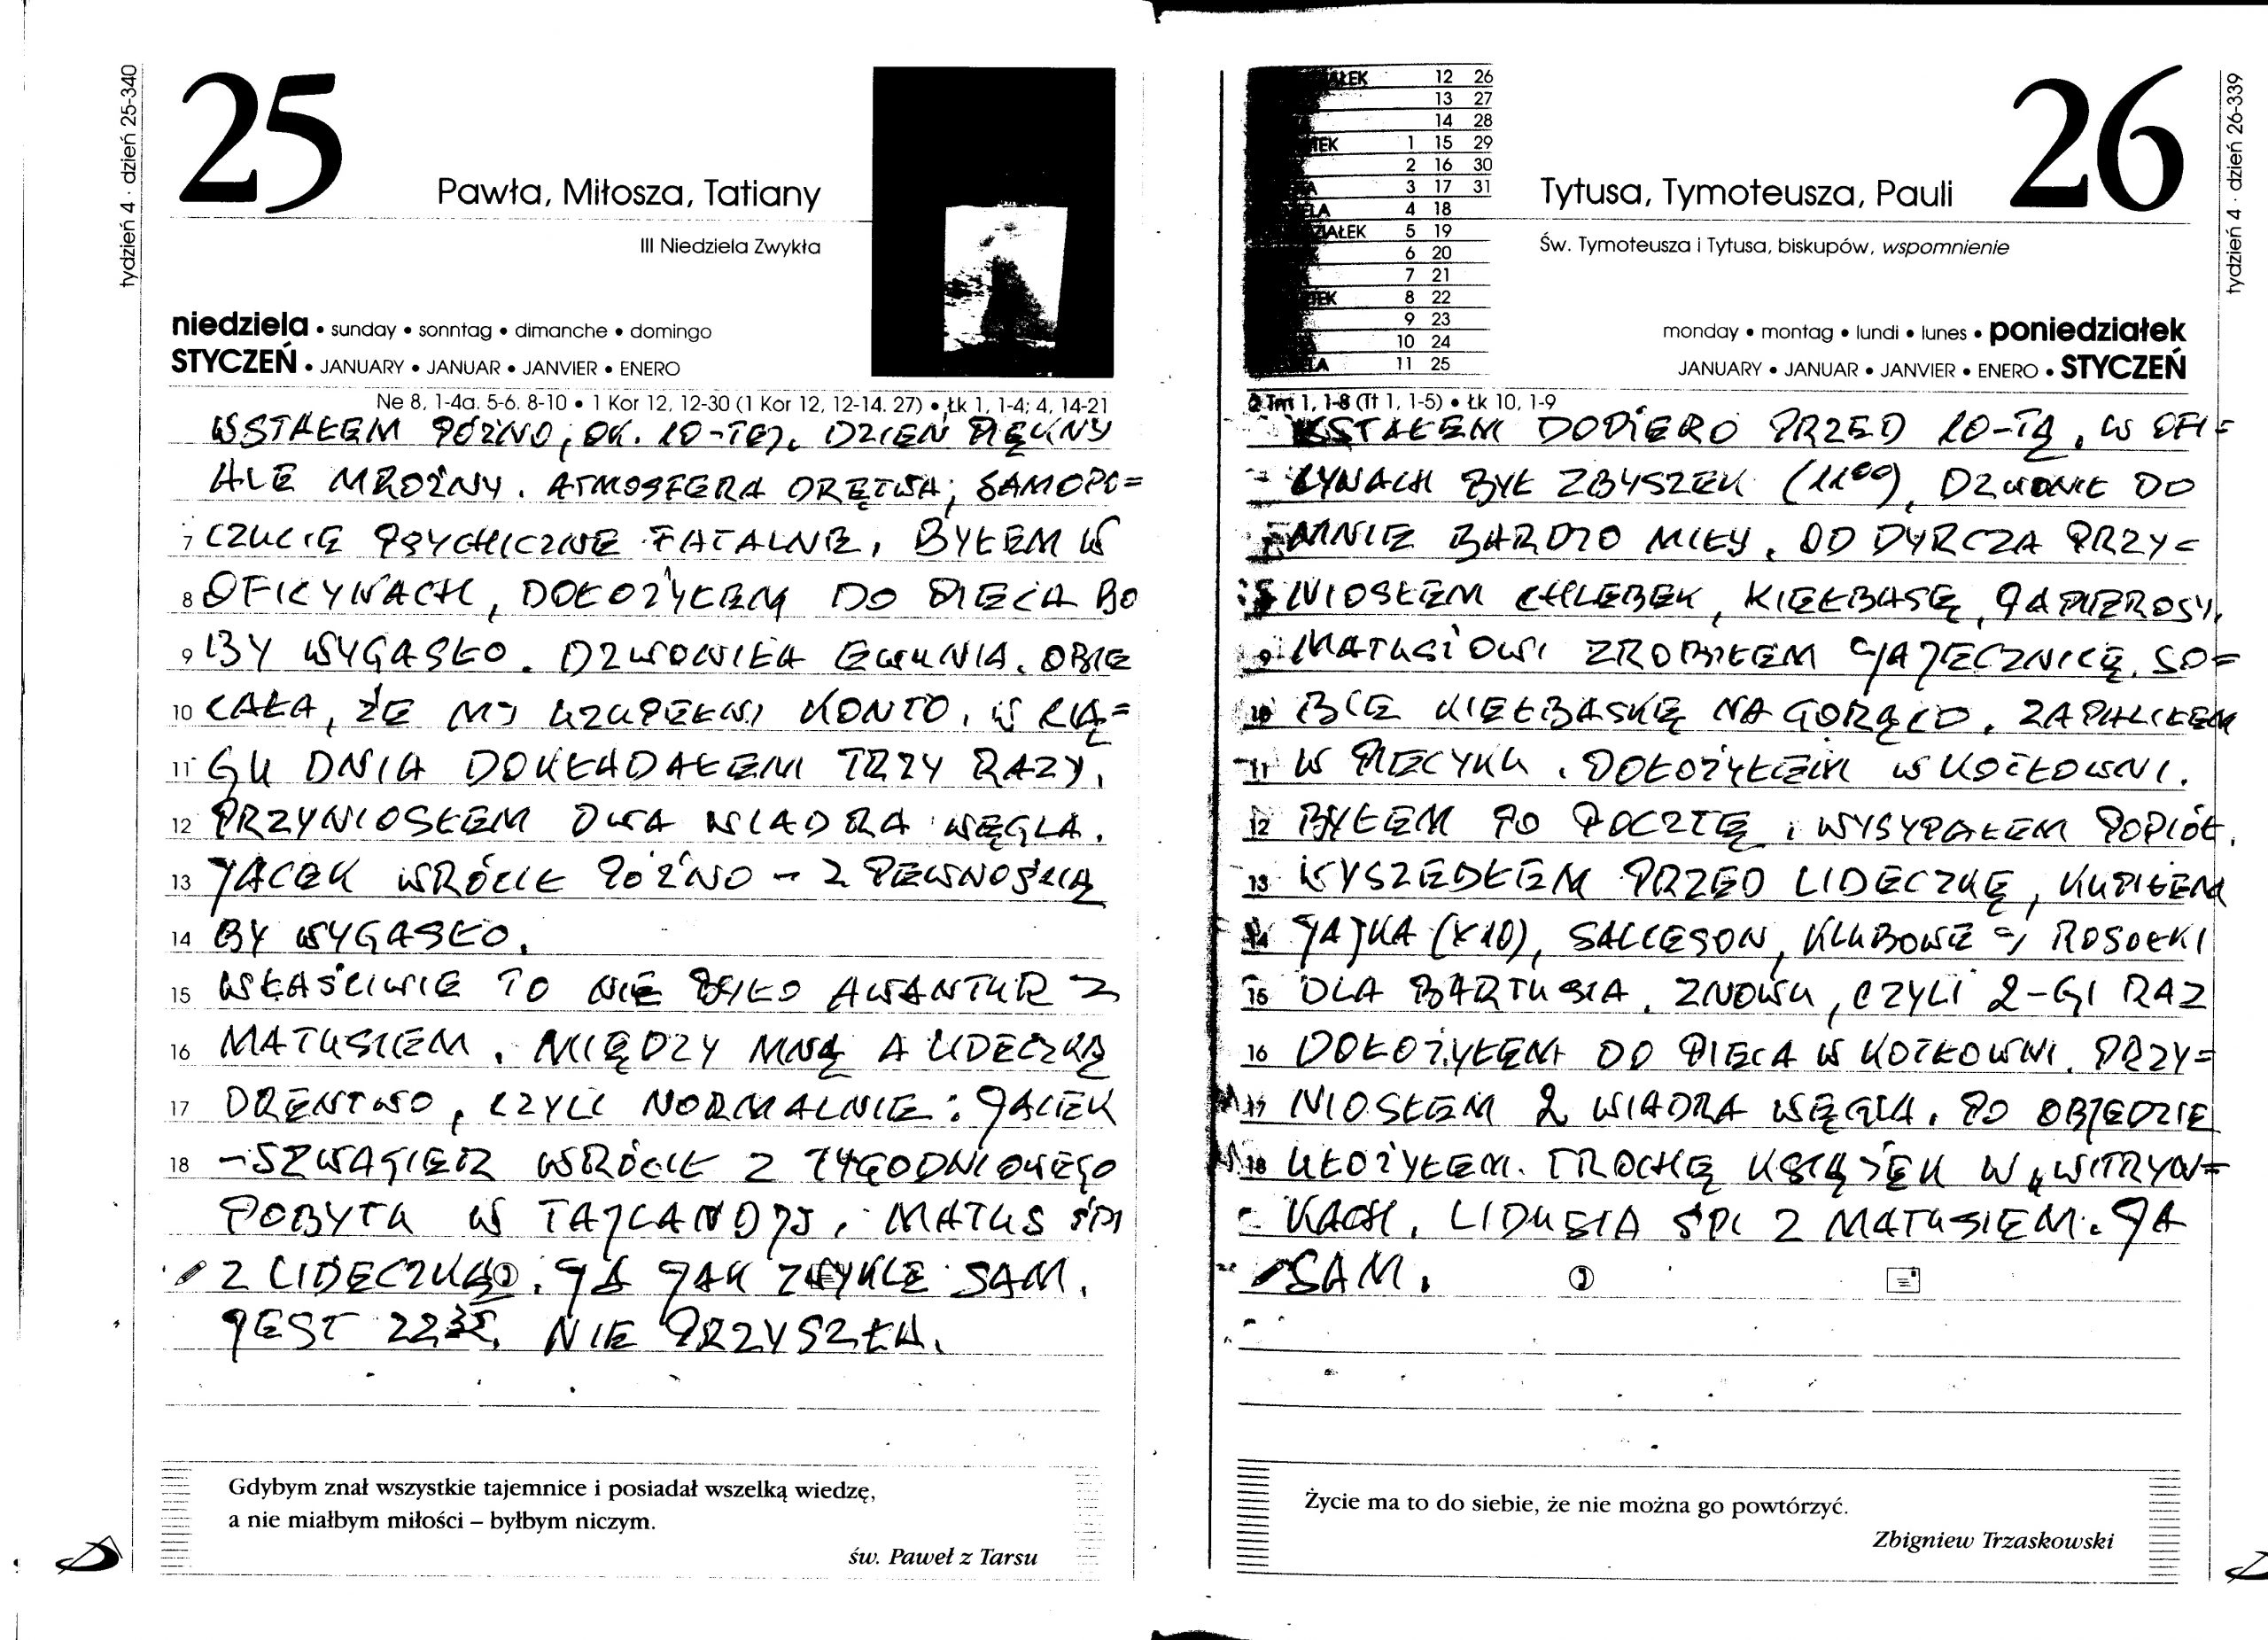 tydzień 4 · dzień 25-340
25
Pawła, Miłosza, Tatiany
III Niedziela Zwykła
niedziela • sunday • sonntag • dimanche • domingo
STYCZEŃ • JANUARY • JANUAR • JANVIER • ENERO
Ne 8, 1-4a. 5-6. 8-10 • 1 Kor 12, 12-30 (1 Kor 12, 12-14. 27) • Łk 1, 1-4; 4, 14-21
WSTAŁEM PÓŹNO, OK. 10-TEJ. DZIEŃ PIĘKNY
ALE MROŹNY. ATMOSFERA DRĘTWA, SAMOPO=
7 CZUCIE PSYCHICZNE FATALNE, BYŁEM W
8 OFICYNACH, DOŁOŻYŁEM DO PIECA BO
9 BY WYGASŁO. DZWONIŁA EWUNIA. OBIE
10 CAŁA, ŻE MJ UZUPEŁNI KONTO. W CIĄ=
11 GU DNIA DOKŁADAŁEM TRZY RAZY,
12 PRZYNIOSŁEM DWA WIADRA WĘGLA.
13 JACEK WRÓCIŁ PÓŹNO - Z PEWNOŚCIĄ
14 BY WYGASŁO.
15 WŁAŚCIWIE TO NIE BYŁO AWANTUR Z
16 MATUSIEM. MIĘDZY MNĄ A LIDECZKĄ
17 DRĘNTWO, CZYLI NORMALNIE. JACEK
18 - SZWAGIER WRÓCIŁ Z TYGODNIOWEGO
POBYTU W TAJLANDJJ. MATUŚ ŚPI
Z LIDECZKĄ. JA JAK ZWYKLE SAM.
JEST 22 35. NIE PRZYSZŁA.
Gdybym znał wszystkie tajemnice i posiadał wszelką wiedzę,
a nie miałbym miłości – byłbym niczym.
św. Paweł z Tarsu
12 26
13 27
14 28
1 15 29
2 16 30
3 17 31
4 18
5 19
6 20
7 21
8 22
9 23
10 24
11 25
Tytusa, Tymoteusza, Pauli
26
tydzień 4 · dzień 26-339
Św. Tymoteusza i Tytusa, biskupów, wspomnienie
monday • montag • lundi • lunes • poniedziałek
JANUARY • JANUAR • JANVIER • ENERO • STYCZEŃ
2 Tm 1, 1-8 (Tt 1, 1-5) • Łk 10, 1-9
WSTAŁEM DOPIERO PRZED 10-TĄ, W OFI=
CYNACH BYŁ ZBYSZEK (11 00), DZIWNIE DO
MNIE BARDZO MIŁY. OD DYRCZA PRZY=
NIOSŁEM CHLEBEK, KIEŁBASĘ, PAPIEROSY.
9 MATUSIOWI ZROBIŁEM JAJECZNICĘ, SO=
10 BIE KIEŁBASKĘ NA GORĄCO. ZAPALIŁEM
11 W PIECYKU. DOŁOŻYŁEM W KOTŁOWNI.
12 BYŁEM PO POCZTĘ I WYSYPAŁEM POPIÓŁ.
13 WYSZEDŁEM PRZED LIDECZKĘ, KUPIŁEM
14 JAJKA (X10), SALCESON, KLUBOWE I ROSOŁKI
15 DLA BARTUSIA. ZNOWU, CZYLI 2-GI RAZ
16 DOŁOŻYŁEM DO PIECA W KOTŁOWNI. PRZY=
17 NIOSŁEM 2 WIADRA WĘGLA. PO OBJEDZIE
18 UŁOŻYŁEM TROCHĘ KSIĄŻEK W „WITRYN=
KACH. LIDUSIA ŚPI Z MATUSIEM. JA
SAM.
Życie ma to do siebie, że nie można go powtórzyć.
Zbigniew Trzaskowski